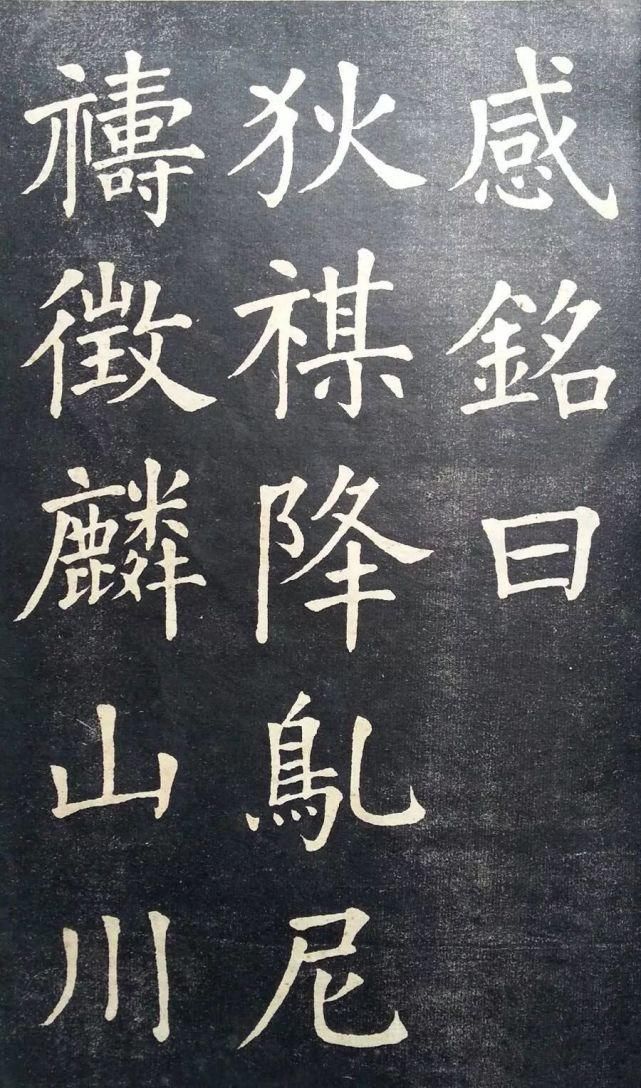 感銘曰
狄禖降鳦尼
禱徵麟山川